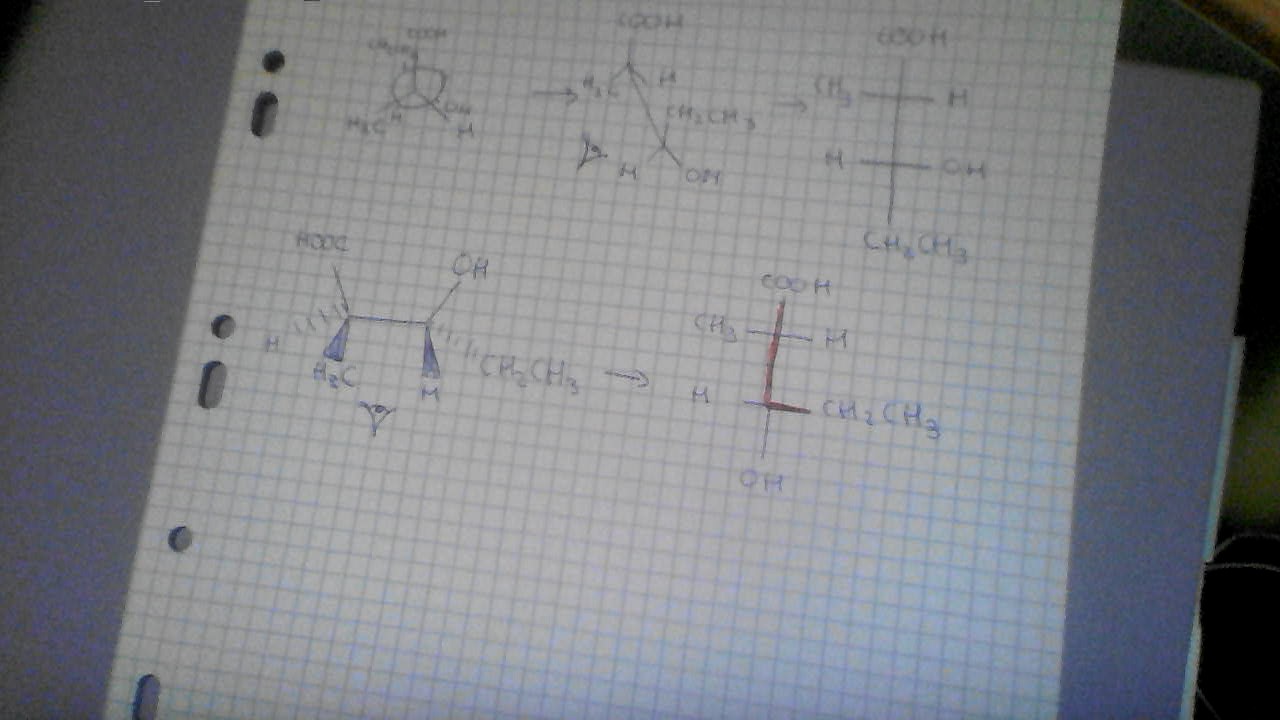 COOH
CH₂CH₃
H₃C H OH H
COOH
H₃C H
CH₂CH₃
H OH
COOH
CH₃ H
H OH
CH₂CH₃
HOOC OH
H H₃C H CH₂CH₃
COOH
CH₃ H
H CH₂CH₃
OH